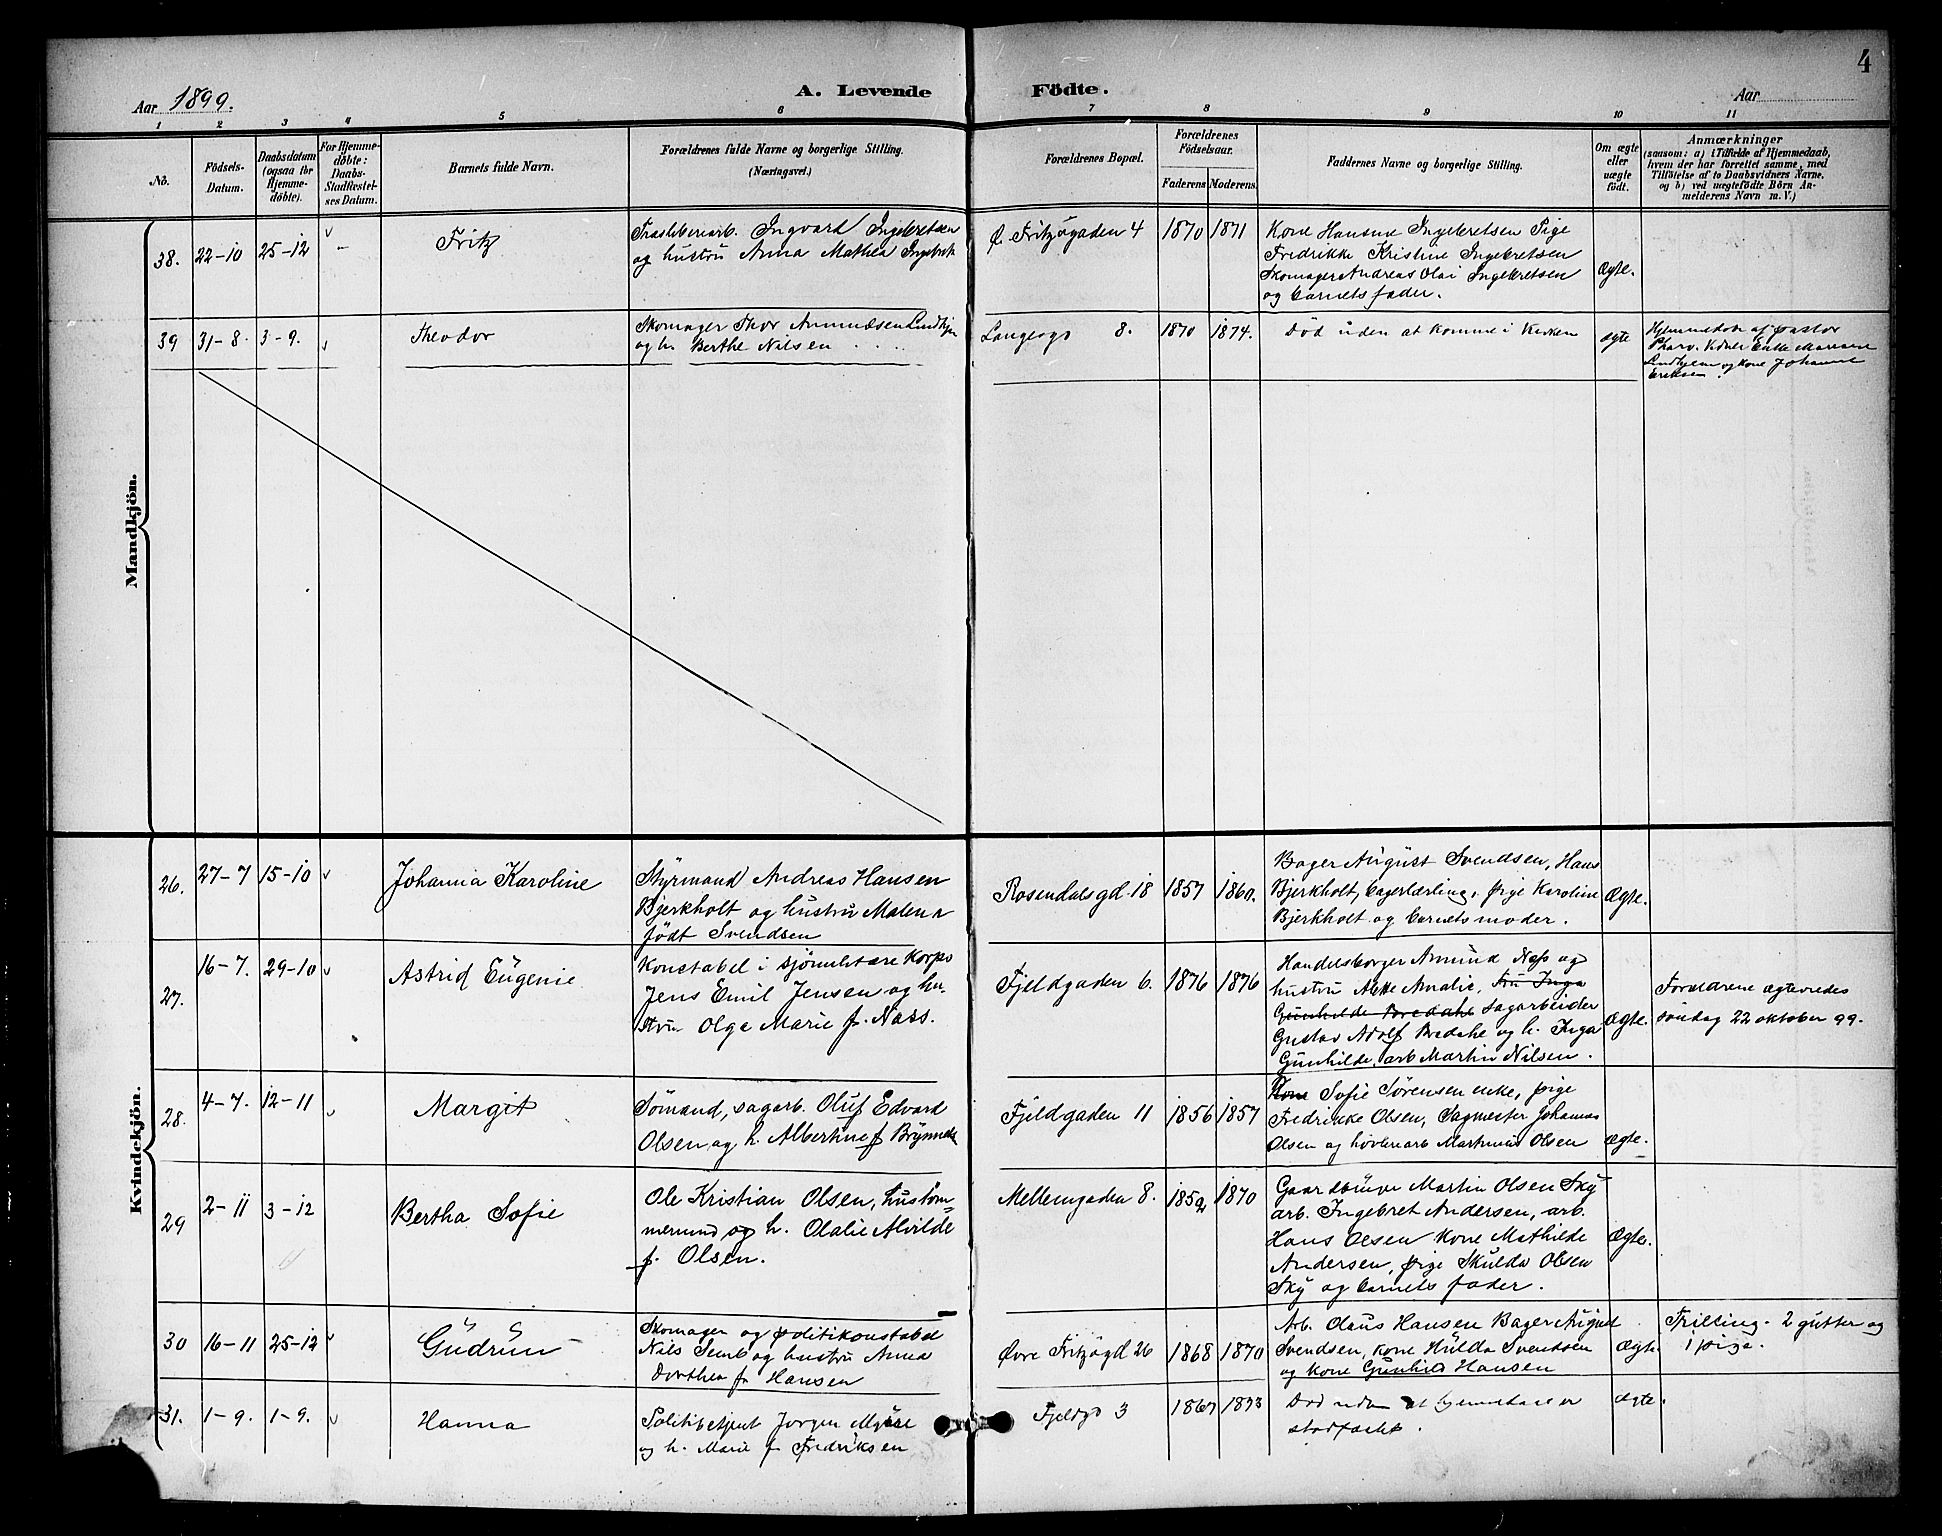 4
Aar 1899.
A. Levende Födte.
Aar
1 2 3 4 5 6 7 8 9 10 11
No.
Födsels-
Datum.
Daabsdatum
(ogsaa for
Hjemme-
döbte).
For Hjemme-
döbte:
Daabs-
Stadfæstel-
ses Datum.
Barnets fulde Navn.
Forældrenes fulde Navne og borgerlige Stilling.
(Næringsvei.)
Forældrenes Bopæl.
Forældrenes
Födselsaar.
Faderens. Moderens.
Faddernes Navne og borgerlige Stilling.
Om ægte
eller
uægte
født.
Anmærkninger
(saasom: a) i Tilfælde af Hjemmedaab,
hvem der har forrettet samme, med
Tilföielse af to Daabsvidners Navne,
og b) ved uægtefödte Börn An-
melderens Navn m. V.)
Mandkjön.
38. 22-10 25-12 v — Fritz
Træsliberiarb. Ingvard Ingebretsen
og hustru Anna Mathea Ingebret
Ø. Fritzögaden 4 1870 1871
Kone Hansine Ingebretsen Pige
Fredrikke Kristine Ingebretsen
Skomager Andreas Olai Ingebretsen
og barnets fader.
Ægte.
39 31-8. 3-9. v Theodor
Skomager Thor Amundsen Lindhjem
og h. Berthe Nilsen
Langesgd 8. 1870 1874.
Död uden at komme i Kirken
ægte
Hjemmedöbt af pastor
Enke Maren
Lindhjem og kone Johanne
Eriksen.
Kvindekjön.
26. 27-7 15-10 v Johanna Karoline
Styrmand Andreas Hansen
Bjerkholt og hustru Malena
födt Svendsen
Rosendalsgd. 18 1857 1860.
Bager August Svendsen, Hans
Bjerkholt, bagerlærling, pige Karoline
Bjerkholt og barnets moder.
Ægte.
27. 16-7. 29-10 v Astrid Eugenie
Konstabel i sjömilitære Korps
Jens Emil Jensen og hu-
stru Olga Marie f. Næss.
Fjeldgaden 6. 1876 1876
Handelsborger Amund Næss og
hustru Amalie, Fru Inga
Gunhilde Bredahe sagarbeider
Gustav Adolf Bredahe og h. Inga
Gunhilde, arb Martin Nilsen.
Ægte.
Forældrene ægteviedes
söndag 22 oktober 99.
28. 4-7. 12-11 v Margit
Sömand, sagarb. Oluf Edvard
Olsen og h. Albertine f.
Fjeldgaden 11 1856 1857
Kone Sofie Sørensen enke, pige
Fredrikke Olsen, Sagmester Johannes
Olsen og hövleriarb Martinius Olsen
ægte.
29 2-11 3-12 Bertha Sofie
Ole Kristian Olsen, hustöm-
mermand og h. Olalie Alvilde
f. Olsen.
Mellemgaden 8. 1859 1870
Gaardbruger Martin Olsen Sky
arb. Ingebret Andersen, arb.
Hans Olsen Kone Mathilde
Andersen, pige Skulda Olsen
Sky og barnets fader.
Ægte.
30 16-11 25-12 v Gudrun
Skomager og politikonstabel
Nils Semb og hustru Anna
Dorthea f. Hansen
Øvre Fritzögd 26 1868 1870
Arb. Olaus Hansen Bager August
Svendsen, kone Hulda Svendsen
og kone Gunhild Hansen
Ægte
Trilling. 2 gutter og
1 pige.
31. 1-9. 1-9. v Hanna
Politibetjent Jörgen
og h. Marie f. Fredriksen
Fjeldgd 3 1867 1873
Död uden at hjemmedaab er
stadfæstet.
Ægte.